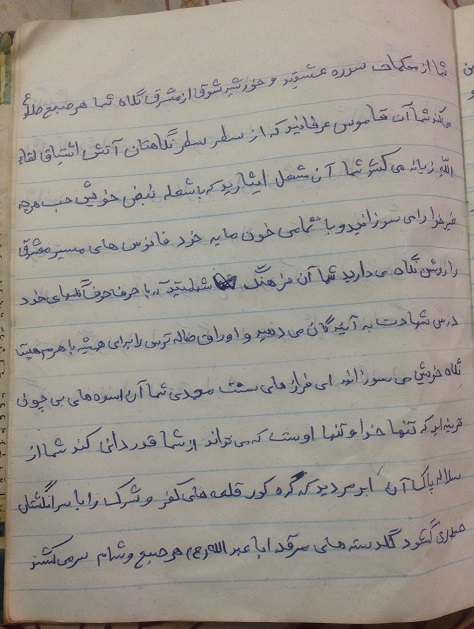 شما از محکمات سوره عشقید و خورشید شوق از مشرق نگاه شما هر صبح طلوع
می‌کند شما آن قاموس عرفانید که از سطر سطر نگاهتان آتش اشتیاق لقاء
الله زبانه می کشد شما آن مشعل ایثارید که با شعله نبض خویش حب هرچه
غیر خدا را می سوزانید و با تمامی خون مایه خود فانوس های مسیر
را روشن نگاه می دارید شما آن فرهنگ که با حرف حرف خود
درس شهادت به آیندگان می دهید و اوراق را برای همیشه با هرم
نگاه خویش می سوزانید ای فراز های سنت محمدی شما آن اسوه های بی چون
قرینه اید که تنها خدا و تنها اوست که می تواند از شما قدردانی کند شما از
سلاله پاک آن ابر مردید که گره کور قلعه های کفر و شرک را با سر انگشتان
گشود گلدسته های مرقد ابا عبدالله (ع) هر صبح و شام سر می کشند